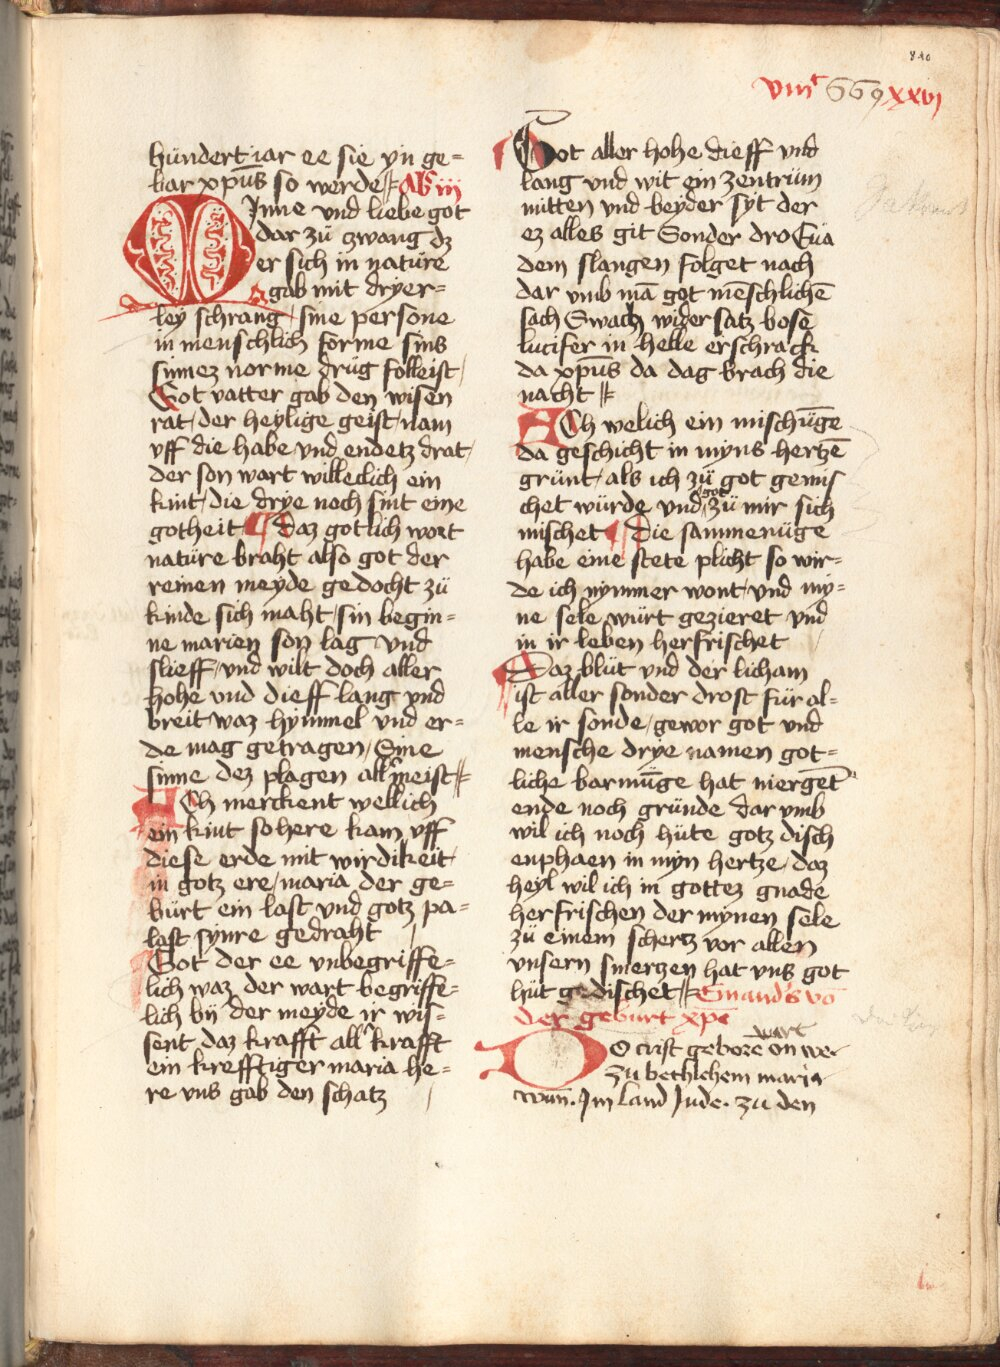 840
viiic 669 xxvj
hundert iar ee sie yn ge=
bar xpūs so werde Ab iij
Minne vnd liebe got
dar zü zwang dz
er sich in natüre
gab mit dryer=
ley schrang sine persone
in menschlich forme sins
sinnez norme drüg folleist
Got vatter gab den wisen
rat der heylige geist nam
vff die habe vnd endetz drat
der son wart willeclich ein
kint die drye noch sint eine
gotheit Daz gotlich wort
natüre braht also got der
reinen meyde gedocht zü
kinde sich maht sin begin=
ne marien son lag vnd
slieff vnd wilt doch aller
hohe vnd dieff lang vnd
breit waz hymmel vnd er=
de mag getragen Sine
sinne dez plagen all meist
Ich merckent wellich
ein kint so here kam vff
diese erde mit wirdikeit
in gotz ere maria der ge=
bürt ein last vnd gotz pa=
last synre gedraht
Got der ee vnbegriffe=
lich waz der wart begriffe=
lich bij der meyde ir wis=
sent daz krafft all krafft
ein krefftiger maria he=
re vns gab den schatz
Got aller hohe dieff vnd
lang vnd wit ein zentrüm
mitten vnd beyder syt der
ez alles git Sonder dro Eua
dem slangen folget nach
dar vmb mā got mēschlichē
sach Swach wider satz bose
lucifer in helle erschrack
da xpūs da dag brach die
nacht
Ich welich ein mischūge
da geschicht in myns hertzē
grünt als ich zü got gemis
chet würde vnd got zü mir sich
mischet Die sammenüge
habe eine stete plicht so wir=
de ich nymmer wont vnd my=
ne sele würt gezieret vnd
in ir leben herfrischet
Daz blüt vnd der licham
ist aller sonder drost für al=
le ir sonde gewor got vnd
mensche drye namen got=
liche barmūge hat niergēt
ende noch gründe dar vmb
wil ich noch hüte gotz disch
enphaen in myn hertze daz
heyl wil ich in gottez gnade
herfrischen der mynen sele
zü einem schertz vor allen
vnsern smerzen hat vns got
hüt gedischet Emand's vō
der geburt xpē
wart
DO crist geborē on we
zu bethlehem maria
Im land Jude. zu den